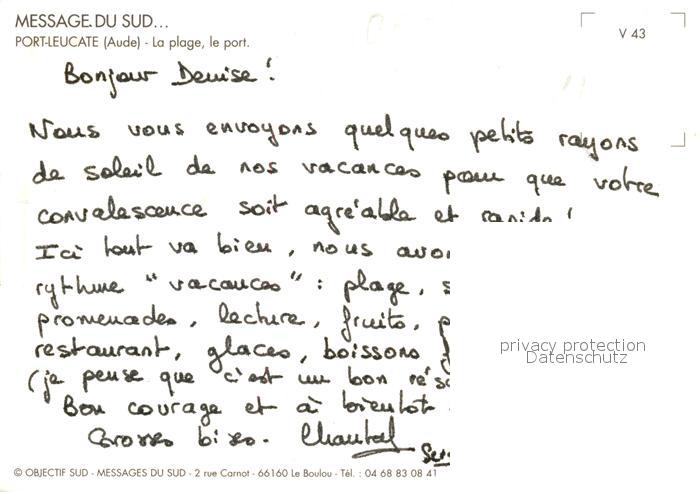 MESSAGE DU SUD...
PORT-LEUCATE (Aude) - La plage, le port.
V 43
Bonjour Denise !
Nous vous envoyons quelques petits rayons
de soleil de nos vacances pour que votre
convalescence soit agréable et rapide !
Ici tout va bien, nous
rythme "vacances" : plage,
promenades, lecture, fruits,
restaurant, glaces, boissons
(je pense que c'est un bon
Bon courage et à bientôt
Grosses bises. Chantal
privacy protection
Datenschutz
© OBJECTIF SUD - MESSAGES DU SUD - 2 rue Carnot - 66160 Le Boulou - Tél. : 04 68 83 08 41